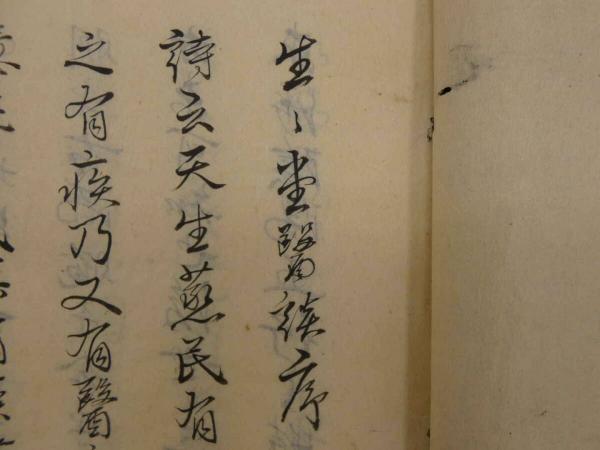 生々堂醫談序
詩云天生蒸民有
之有疾乃又有醫